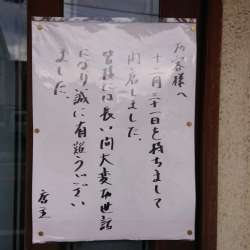 お客様へ
十二月三十一日を持ちまして
閉店しました。
皆様には長い間大変お世話
になり誠に有難うござい
ました。
店主